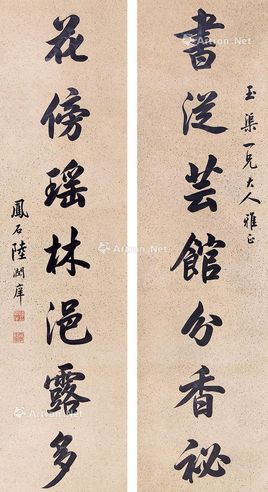 書從芸館分香祕
玉渠一兄大人雅正
花傍瑶林浥露多
鳳石陸潤庠
Artron.Net
Artron.Net
Artron.Net
Artron.Net